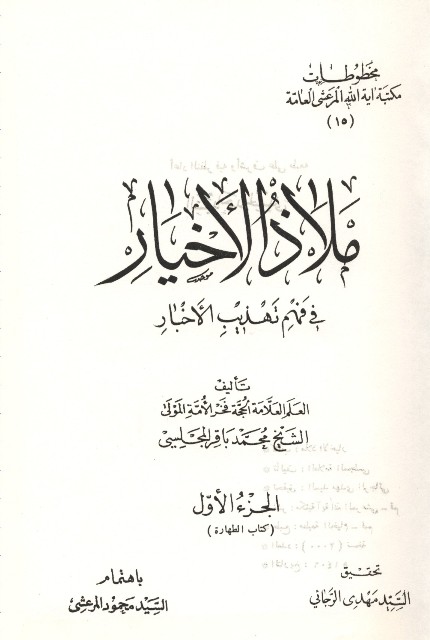 مخطوطات
مكتبة آية الله المرعشي العامة
(١٥)
ملاذ الأخيار
في فهم تهذيب الأخبار
تأليف
العلم العلامة الحجة فخر الأمة المولى
الشيخ محمد باقر المجلسي
الجزء الأول
(كتاب الطهارة)
تحقيق
السيد مهدي الرجائي
باهتمام
السيد محمود المرعشي